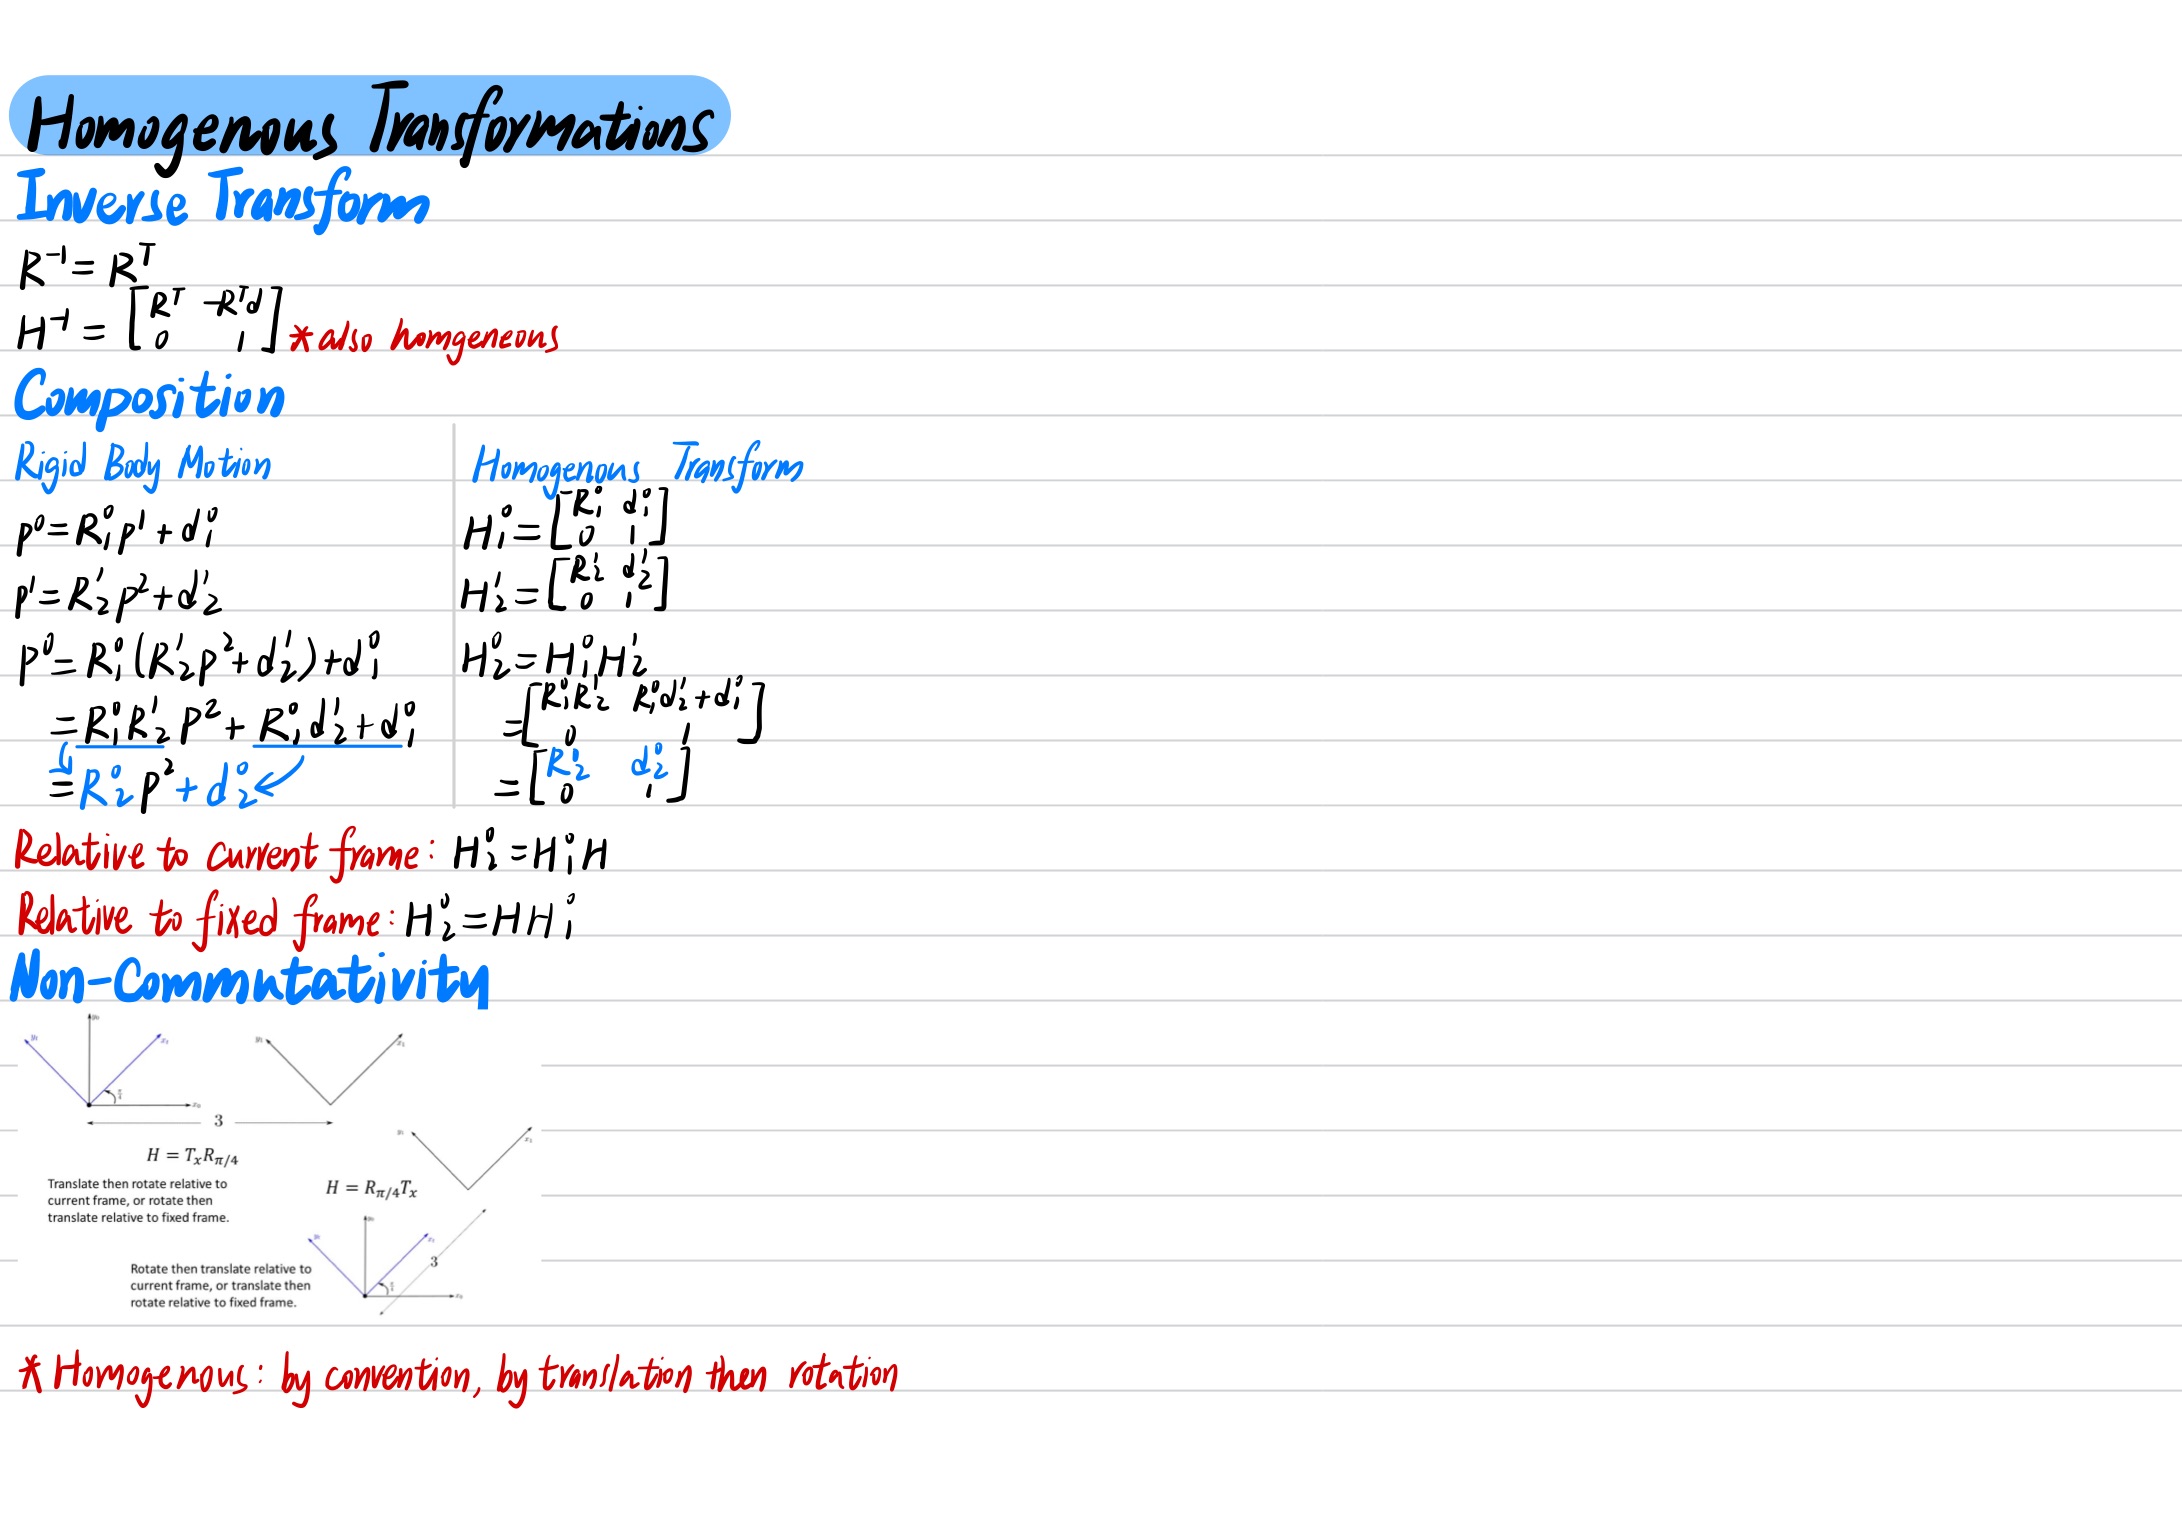 Homogenous Transformations
Inverse Transform
R⁻¹ = Rᵀ
H⁻¹ = [Rᵀ -Rᵀd; 0 1] *also homgeneous
Composition
Rigid Body Motion
p⁰ = R₁⁰p¹ + d₁⁰
p¹ = R₂¹p² + d₂¹
p⁰ = R₁⁰(R₂¹p² + d₂¹) + d₁⁰
= R₁⁰R₂¹p² + R₁⁰d₂¹ + d₁⁰
= R₂⁰p² + d₂⁰
Homogenous Transform
H₁⁰ = [R₁⁰ d₁⁰; 0 1]
H₂¹ = [R₂¹ d₂¹; 0 1]
H₂⁰ = H₁⁰H₂¹
= [R₁⁰R₂¹ R₁⁰d₂¹ + d₁⁰; 0 1]
= [R₂⁰ d₂⁰; 0 1]
Relative to current frame: H₂⁰ = H₁⁰H
Relative to fixed frame: H₂⁰ = HH₁⁰
Non-Commutativity
y₀
x₀
3
H = TₓR_π/4
Translate then rotate relative to
current frame, or rotate then
translate relative to fixed frame.
H = R_π/4Tₓ
3
Rotate then translate relative to
current frame, or translate then
rotate relative to fixed frame.
* Homogenous: by convention, by translation then rotation